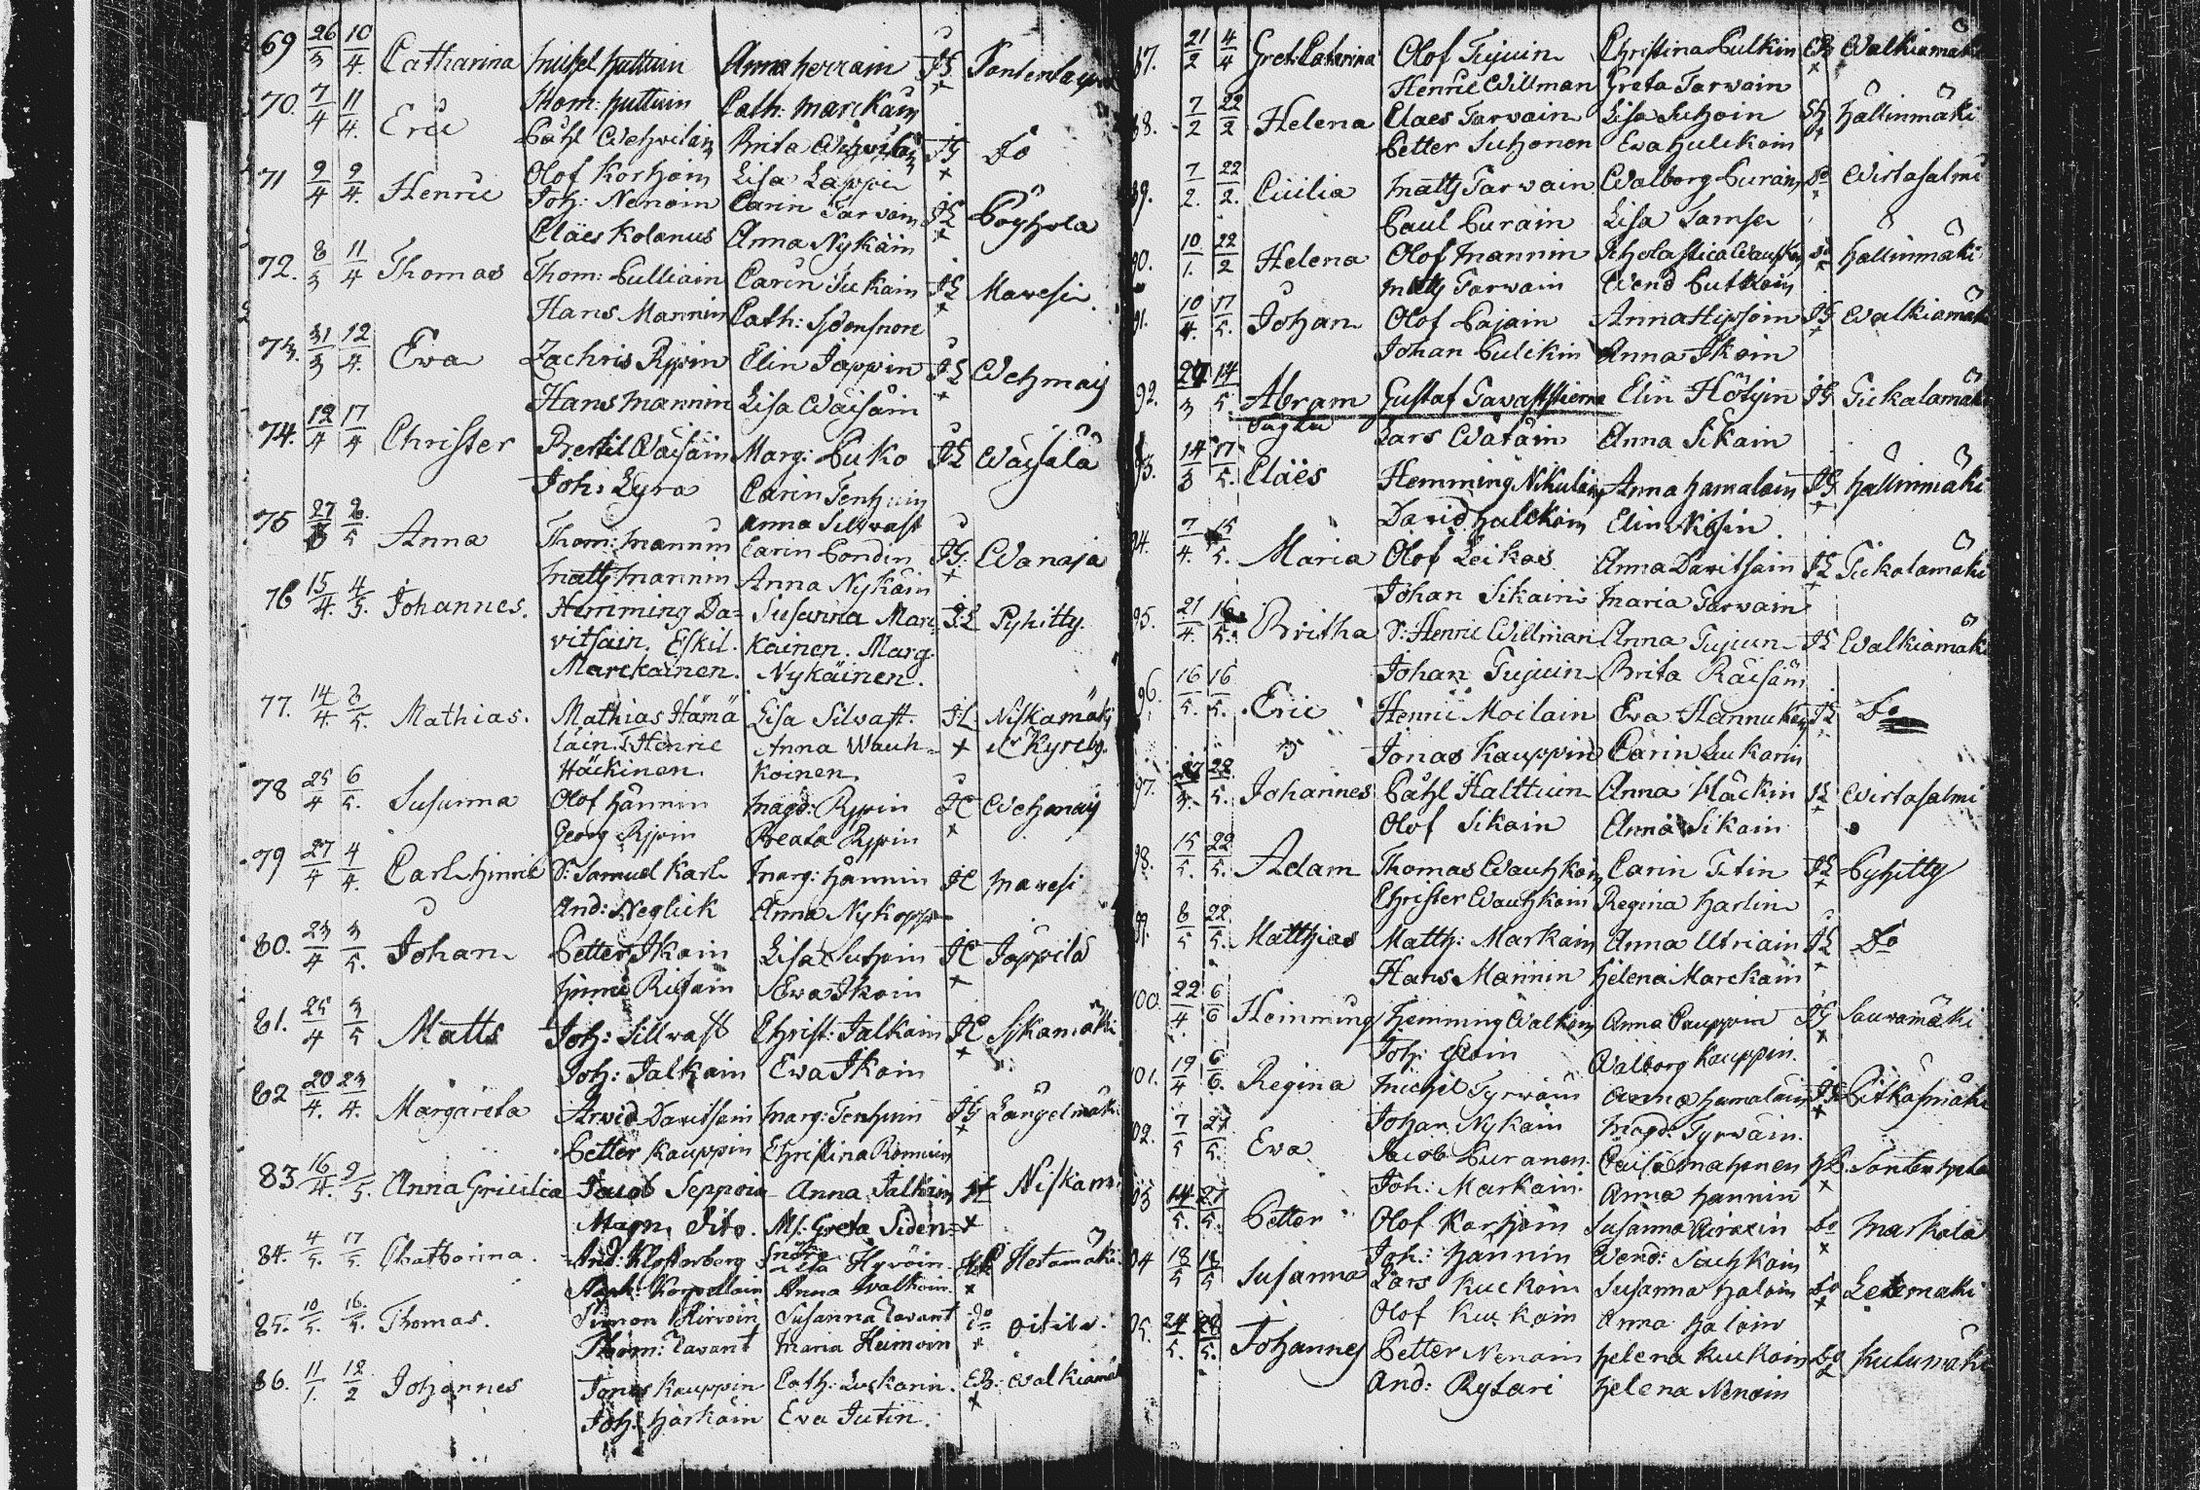 69 26/3 10/4. Catharina Michel Huttuin Anna Herrain JG Pontenlayu
70. 7/4 11/4. Eric Thom: Huttuin Cath: Marckain
Påhl Wehvilain Brita Wehvilain JG Do
71 9/4 9/4. Henric Olof Korhoin Lisa Lappi
Joh: Nenoin Carin Tarvain JL Pöyhola
Claës Kolanus Anna Nykäin
72. 8/3 11/4 Thomas Thom: Pulliain Carin Sickain JL Mavesi
Hans Mannin Cath:
73. 31/3 12/4. Ewa Zachris Ryyin Elin Jäppin JL Wehmaij
Hans Mannin Lisa Wäisäin
74. 12/4 17/4 Christer Bertil Wäisäin Marg: Puko JL Wäisälä
Joh: Lyra Carin Tenhuin
75 27/3 2/5 Anna Thom: Mannin Anna Sillvast
Carin Pondin JG Wanaja
Matts Mannin Anna Nykäin
76 15/4. 4/5. Johannes. Hemming Da= Susanna Marc= JL Pyhitty.
vitsain. Eskil. kainen. Marg.
Marckainen. Nykäinen.
77. 14/4. 8/5. Mathias. Mathias Hämä Lisa Silvast. JL Niskamäki
läin. Henric Anna Wauh= + et Kyreby.
Häckinen. koinen.
78 25/4 6/5. Susanna Olof Hännin Magd: Ryyin JC Wehmaij
Georg Ryyin Beata Ryyin
79 27/4 4/4. Carl Hinric S: Samuel Karl Marg: Hännin JC Mavesi
And: Neglick Anna Nykopp
80. 23/4 3/5. Johan Petter Ikoin Lisa Suhoin JC Jäppilä
Hinric Risain Ewa Ikoin
81. 25/4 3/5 Matts Joh: Sillvast Christ: Jalkain JC Niskamäki
Joh: Jalkain Ewa Ikoin
82 20/4. 23/4. Margareta Arvid Davitsain Marg: Tenhuin JG Längelmäki
Petter Kauppin Christina Romuin
83 16/4. 9/5. Anna Cicilia Jacob Seppoin Anna Jalkain Niskam:
Magn. Sito. M: Greta Siden=
84. 4/5. 17/5. Chatharina. And: Klosterberg Lisa Hyvöin Hetamäki
Staph: Korpellain Anna Walkoin
85. 10/5. 16/5. Thomas. Simon Hirvoin Susanna Tavant do Oitila.
Thom: Tavant Maria Heinoin
86. 11/1. 12/2 Johannes Jonas Kauppin Cath: Luckarin. EB: Walkiamäk
Joh: Härkäin Eva Jutin.
87. 21/2 4/4 Gret Catarina Olof Tujuin Christina Pulkin EB Walkiamäki
Henric Willman Greta Tarvain
88. 7/2 22/2 Helena Claes Tarvain Lisa Suhoin Hällinmäki
Petter Suhonen Ewa Hulckoin
89. 7/2. 22/2. Cicilia Matts Tarvain Walborg Purain do Wirtasalmi
Paul Purain Lisa Tamsa
90. 10/1. 22/2 Helena Olof Mannin Scholastica Wauhkoin do Hällinmäki
Matts Tarvain Wend Putkoin
91. 10/4. 17/5. Johan Olof Pajain Anna Hipsoin JG Walkiamäki
Johan Pulckin Anna Ikoin
92. 27/3 14/5. Abram Gustaf Tavaststierna Elin Hölyin JG Tickalamäki
Oägta Lars Watain Anna Sikain
93. 14/3 17/5. Claës Hemming Nikulain Anna Hamalain JG Hällinmäki
David Halckoin Elin Niskin
94. 7/4. 15/5. Maria Olof Leikas Anna Davitsain JL Tickalamäki
Johan Sikain Maria Tarvain
95. 21/4. 16/5. Britha S: Henric Willman Anna Tujuin JL Walkiamäki
Johan Tujuin Brita Räisäin
96. 16/5. 16/5. Eric Henric Moilain Eva Hannukain JL Do
Jonas Kauppin Carin Luckarin
97. 27/3. 22/5. Johannes Påhl Halttuin Anna Häckin JL Wirtasalmi
Olof Sikain Anna Sikain
98. 15/5. 22/5. Adam Thomas Wauhkoin Carin Titin JL Pyhitty
Christer Wauhkoin Regina Harlin
99. 8/5 22/5. Matthias Matth: Markain Anna Utriain JL Do
Hans Mannin Helena Marckain
100. 22/4. 6/6 Hemming Hemming Walkoin Anna Kauppin JG Sauvamäki
Joh: Walborg Kauppin.
101. 19/4 6/6. Regina Michel Tyrväin Anna Hamalain JG Pitkäsmäki
Johan Nykain Magd: Tyrväin.
102. 7/5 27/5. Ewa Jacob Puranen Caisa Mahonen Sonten
Joh: Markain. Anna Hannin
103 14/5. 27/5. Petter Olof Korhoin Susanna do Markala
Joh: Hännin Wend: Sachkain
104 18/5 18/5 Susanna Lars Kuckoin Susanna Haloin do Letemäki
Olof Kuckoin Anna Haloin
105. 24/5. 28/5. Johannes Petter Nenoin Helena Kuckoin do Kulumäki
And: Rytari Helena Nenoin